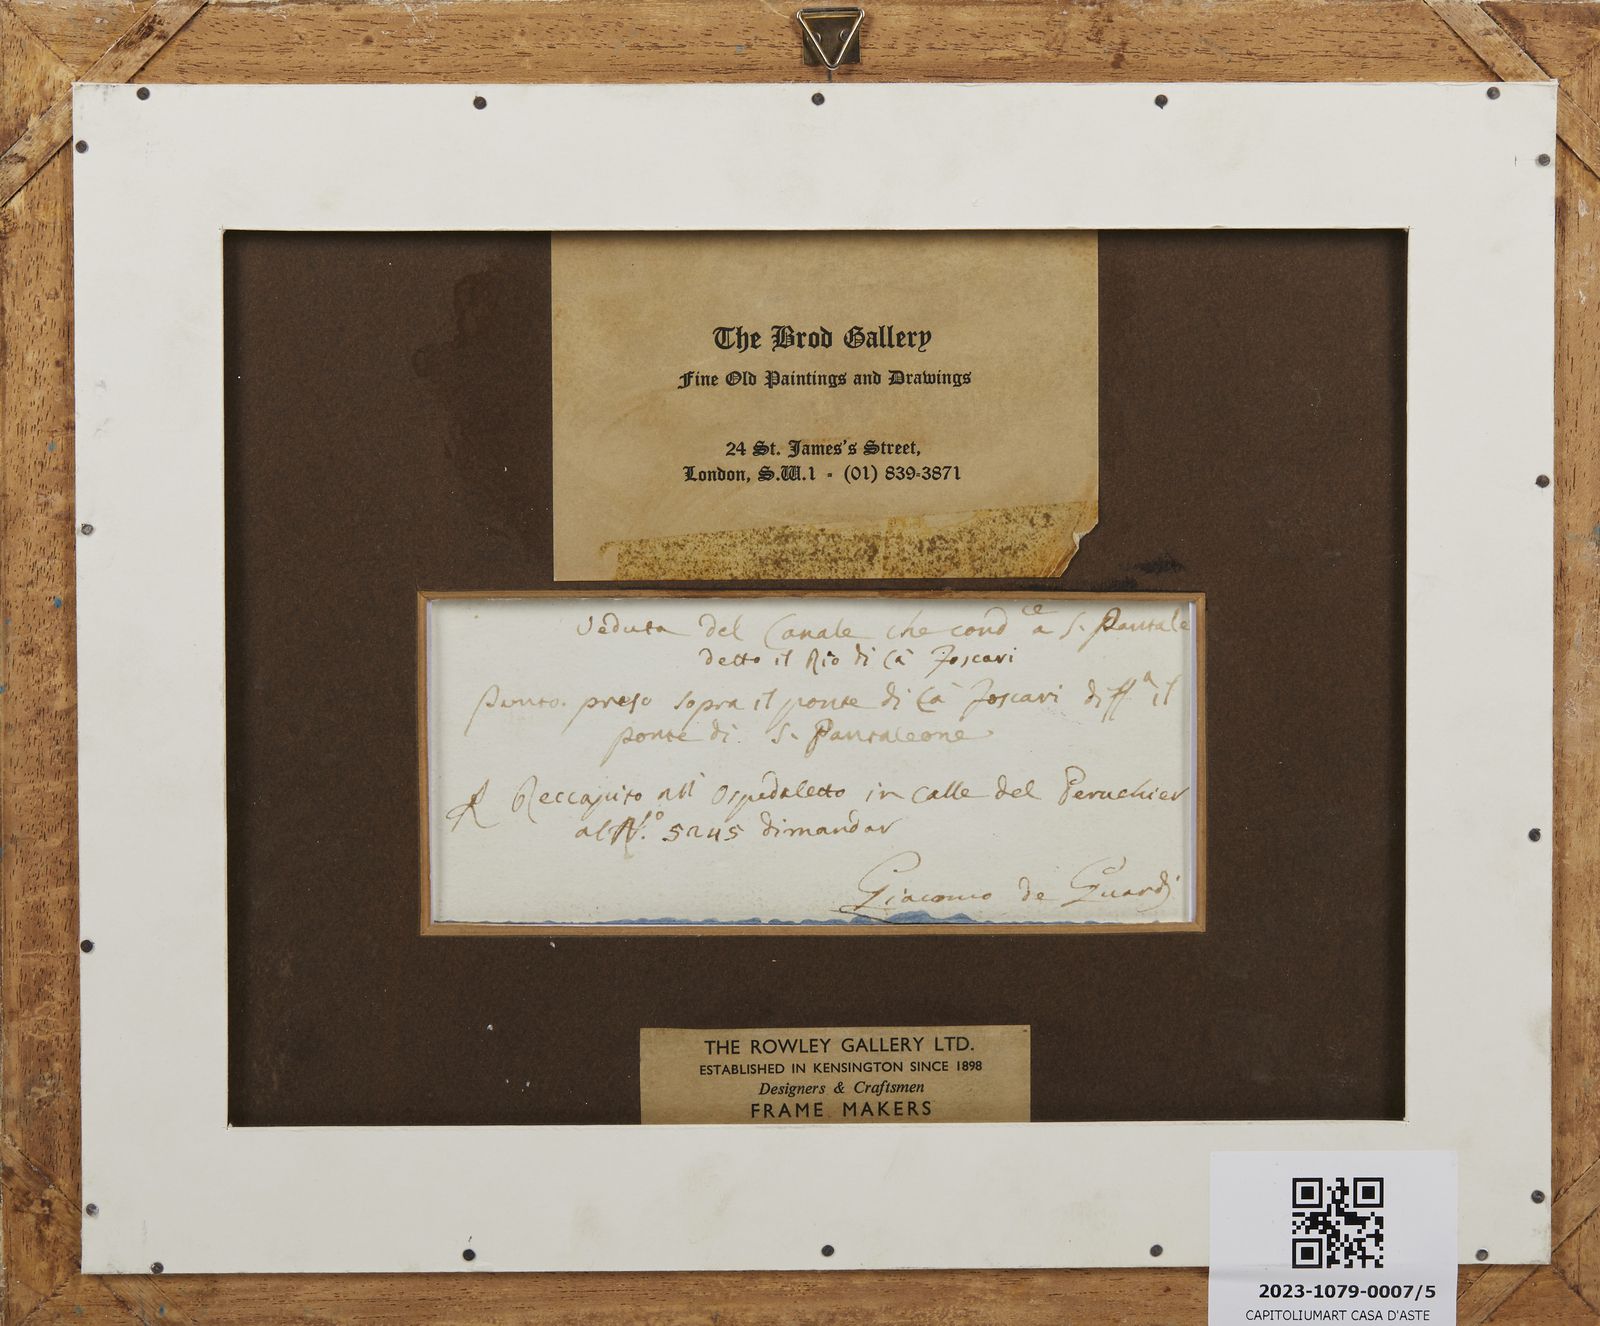 The Brod Gallery
Fine Old Paintings and Drawings
24 St. James's Street,
London, S.W.1 - (01) 839-3871
Veduta del Canale che cond.ce a S. Pantale
detto il Rio di Cà Foscari
Punto preso sopra il ponte di Cà Foscari di ff.a il
ponte di S. Pantaleone
Reccapito all Ospedaletto in calle del Peruchier
al N.o 5245 dimandar
Giacomo de Guardi
THE ROWLEY GALLERY LTD.
ESTABLISHED IN KENSINGTON SINCE 1898
Designers & Craftsmen
FRAME MAKERS
2023-1079-0007/5
CAPITOLIUMART CASA D'ASTE